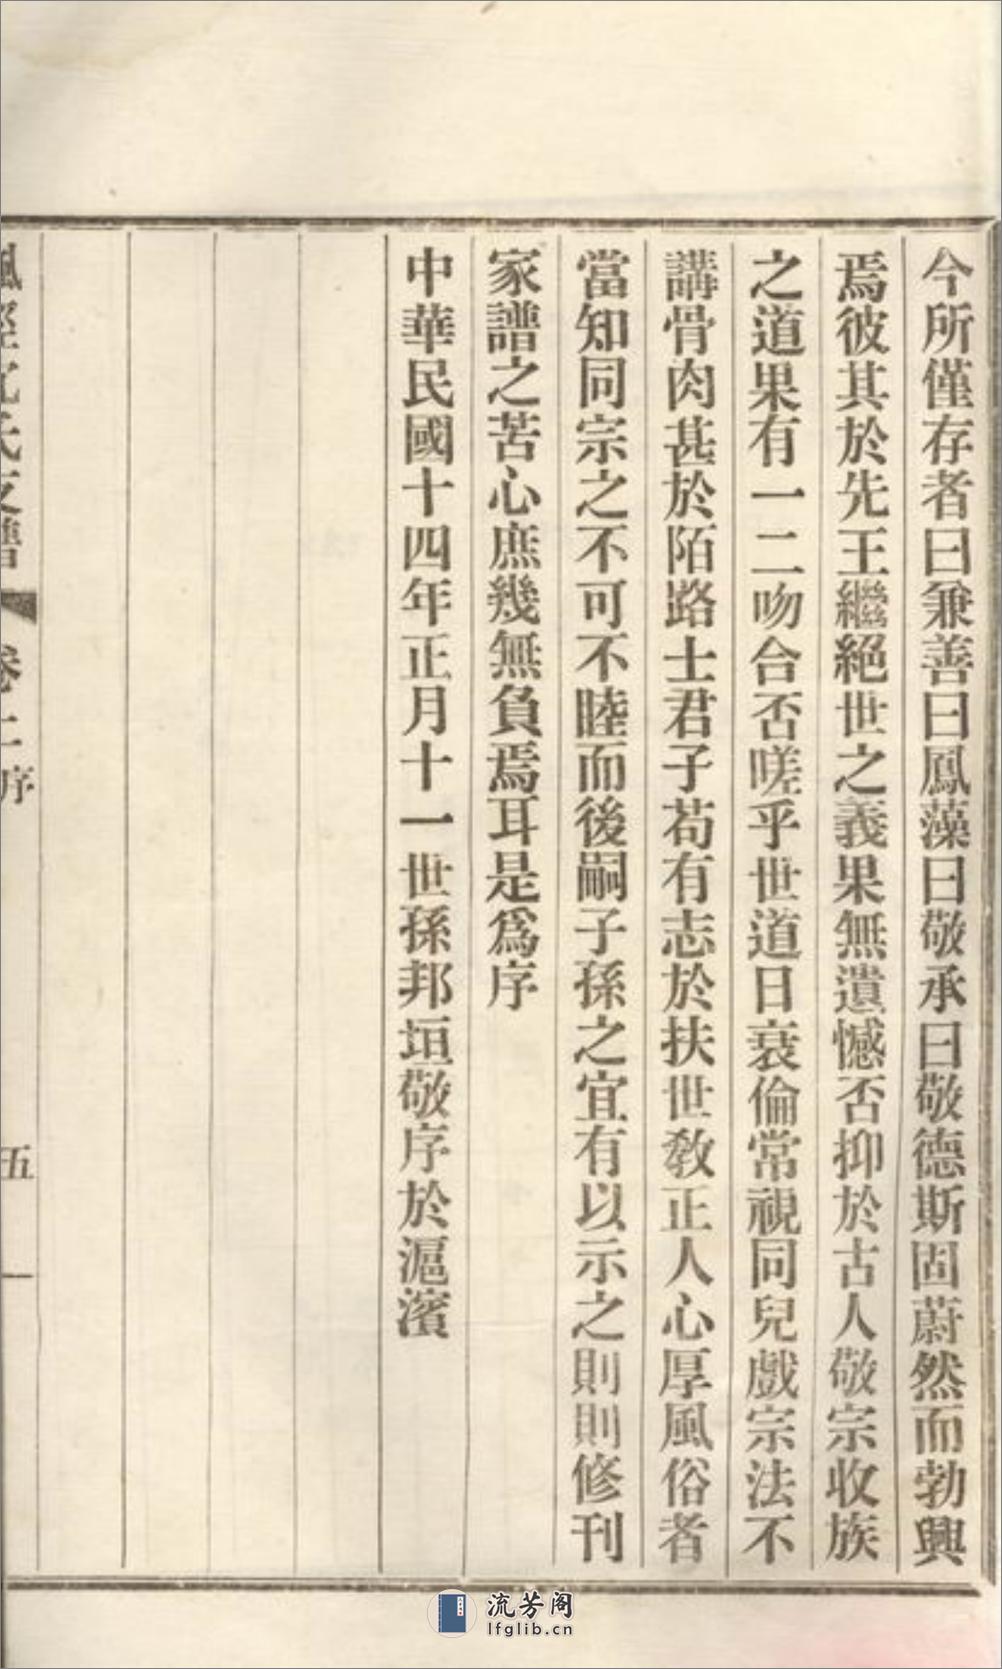 今所僅存者曰兼善曰鳳藻曰敬承曰敬德斯固蔚然而勃興
焉彼其於先王繼絕世之義果無遺憾否抑於古人敬宗收族
之道果有一二吻合否嗟乎世道日衰倫常視同兒戲宗法不
講骨肉甚於陌路士君子苟有志於扶世敎正人心厚風俗者
當知同宗之不可不睦而後嗣子孫之宜有以示之則則修刊
家譜之苦心庶幾無負焉耳是爲序
中華民國十四年正月十一世孫邦垣敬序於滬濱
楓涇沈氏支譜 卷二序 五
流芳阁
lfglib.cn